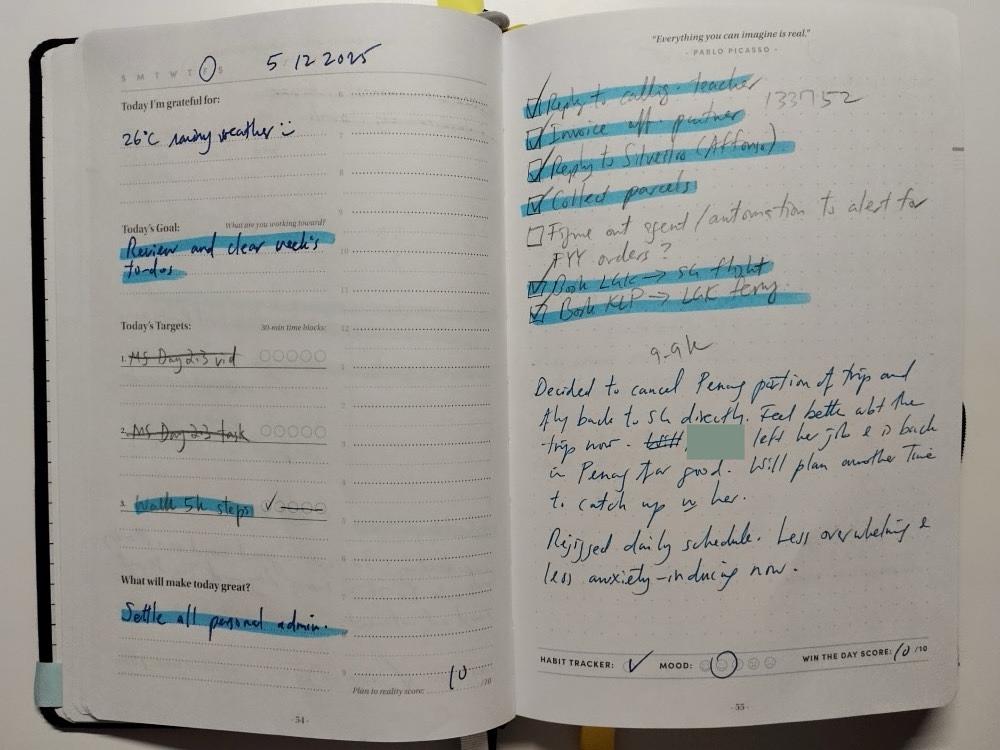 S M T W T F S
5 12 2025
Today I'm grateful for:
26°C rainy weather :)
Today's Goal:
What are you working toward?
Review and clear week's
to-dos
Today's Targets:
30-min time blocks:
1. MS Day 2-3 vid
2. MS Day 2-3 task
3. Walk 5k steps ✓
What will make today great?
Settle all personal admin.
6
7
8
9
10
11
12
1
2
3
4
5
6
7
8
9
Plan to reality score: 10 /10
- 54 -
"Everything you can imagine is real."
- PABLO PICASSO -
☑ Reply to callig. teacher
133752
☑ Invoice aff. partner
☑ Reply to Silvestro (Affonso)
☑ Collect parcels
☐ Figure out agent/automation to alert for
FYY orders?
☑ Book LGK → SG flight
☑ Book KLP → LGK ferry
9.9k
Decided to cancel Penang portion of trip and
fly back to SG directly. Feel better abt the
trip now. left her job & is back
in Penang for good. Will plan another time
to catch up w her.
Rejigged daily schedule. Less overwhelming &
less anxiety-inducing now.
HABIT TRACKER: ✓ MOOD: WIN THE DAY SCORE: 10 /10
- 55 -